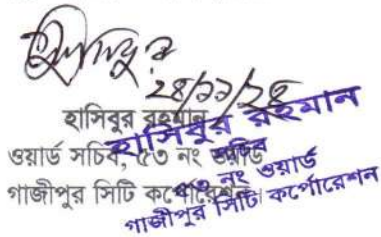 হাসিবুর
২৪/১১/২৪
হাসিবুর রহমান
ওয়ার্ড সচিব, ৫৩ নং ওয়ার্ড
গাজীপুর সিটি কর্পোরেশন।
হাসিবুর রহমান
সচিব
৫৩ নং ওয়ার্ড
গাজীপুর সিটি কর্পোরেশন